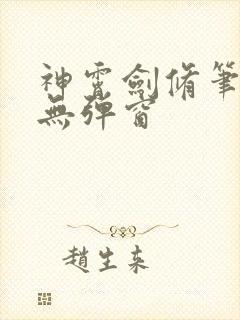 神霄劍脩筆
無彈窗
趙生來